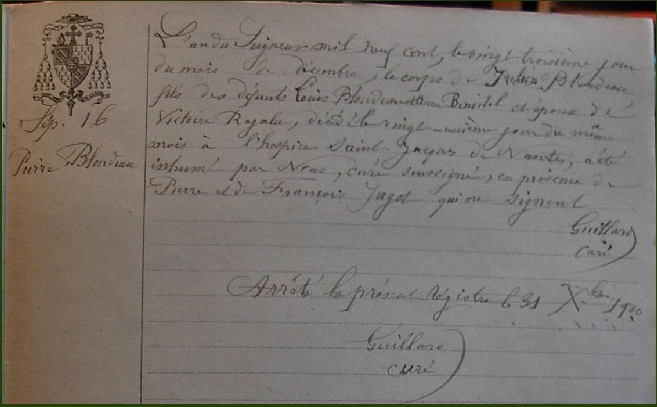 Sép. 16
Pierre Blondeau
L'an du Seigneur mil neuf cent, le vingt troisième jour
du mois de décembre, le corps de Blondeau
fils des défunts Louis Blondeau et et époux de
Victoire Ragalu, décédé le vingt-unième jour du même
mois à l'hospice Saint Jacques de Nantes, a été
inhumé par Nous, curé soussigné, en présence de
Pierre et de François Jagot qui ne signent
Guillard
curé
Arrêté le présent régistre le 31 Xbre 1900
Guillard
curé